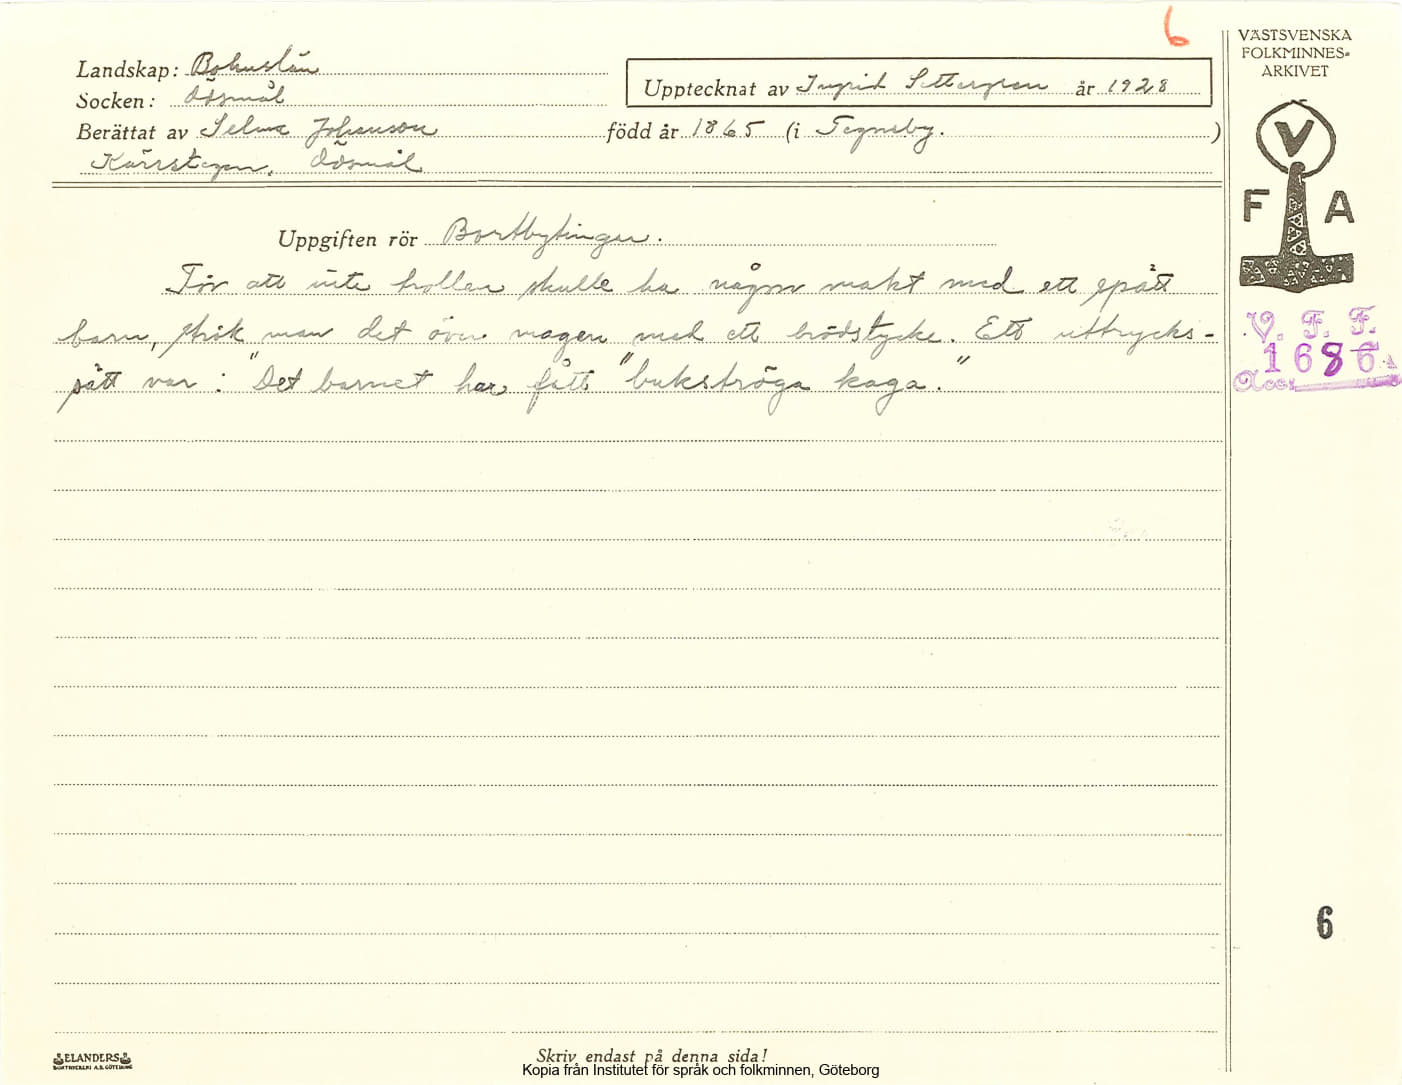 6
Landskap: Bohuslän
Socken: Ödsmål
Upptecknat av Ingrid Settergren år 1928
Berättat av Selma Johanson född år 1865 (i Tegneby.)
Kärrstegen, Ödsmål
VÄSTSVENSKA
FOLKMINNES-
ARKIVET
V
F A
Uppgiften rör Bortbytingar.
För att inte trollen skulle ha någon makt med ett spätt
barn, strök man det över magen med ett brödstycke. Ett uttrycks-
sätt var: "Det barnet har fått "bukströga kaga."
V. F. F.
1686
Acc.
6
ELANDERS
BOKTRYCKERI A.B. GÖTEBORG
Skriv endast på denna sida!
Kopia från Institutet för språk och folkminnen, Göteborg